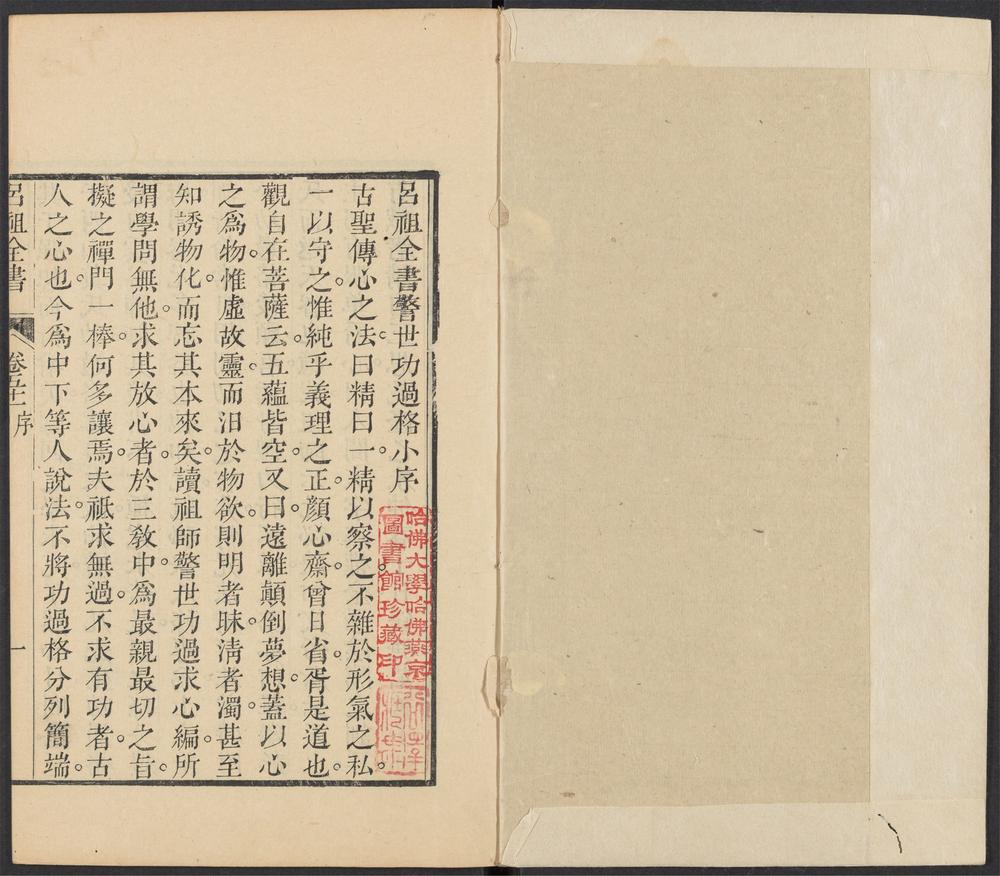 呂祖全書警世功過格小序
古聖傳心之法曰精曰一。精以察之。不雜於形氣之私。
一以守之。惟純乎義理之正。顏心齋曾日省。胥是道也。
觀自在菩薩云。五蘊皆空。又曰。遠離顛倒夢想。蓋以心
之爲物。惟虛故靈。而汩於物欲。則明者昧。淸者濁。甚至
知誘物化。而忘其本來矣。讀祖師警世功過求心編。所
謂學問無他。求其放心者。於三敎中。爲最親最切之旨。
擬之禪門一棒。何多讓焉。夫祗求無過。不求有功者。古
人之心也。今爲中下等人說法。不將功過格分列簡端。
呂祖全書
卷五十一 序
一
哈佛大學哈佛燕京
圖書館珍藏印